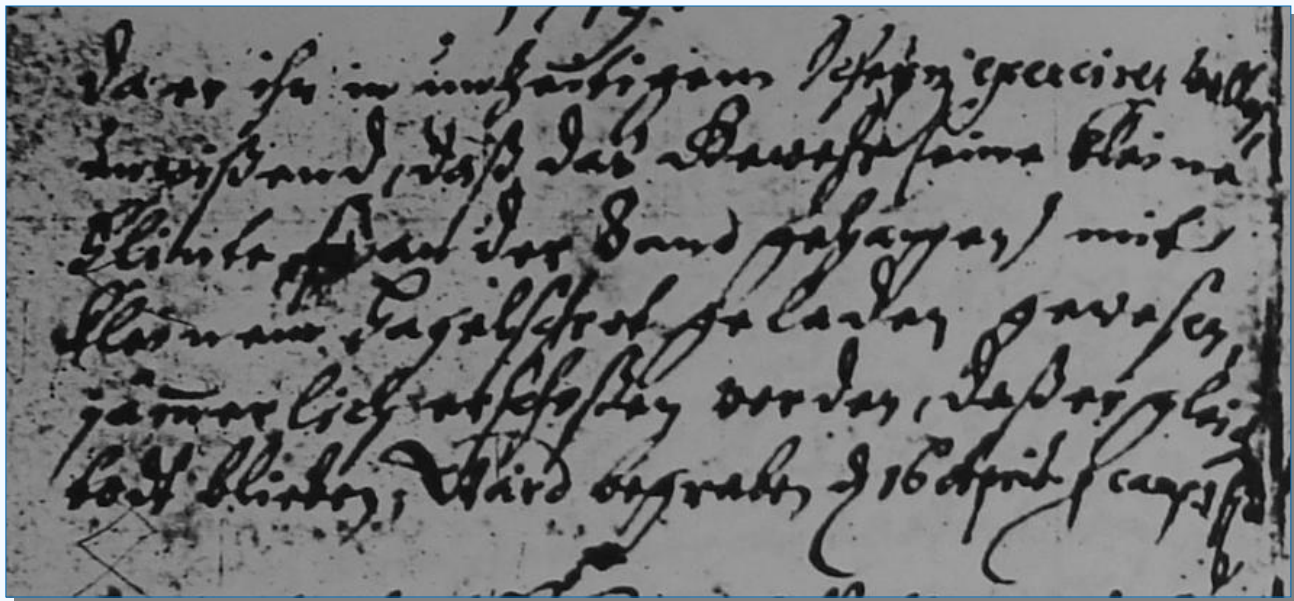 1719.
da er ihn in unzeitigem Schertz exerciren wollen
unwißend, daß das Gewehr (eine kleine
Flinte an der Wand gehangen) mit
kleinem Hagelschrot geladen gewesen,
jam̅erlich erschoßen worden, daß er gleich
todt blieben, Ward begraben d 16 April